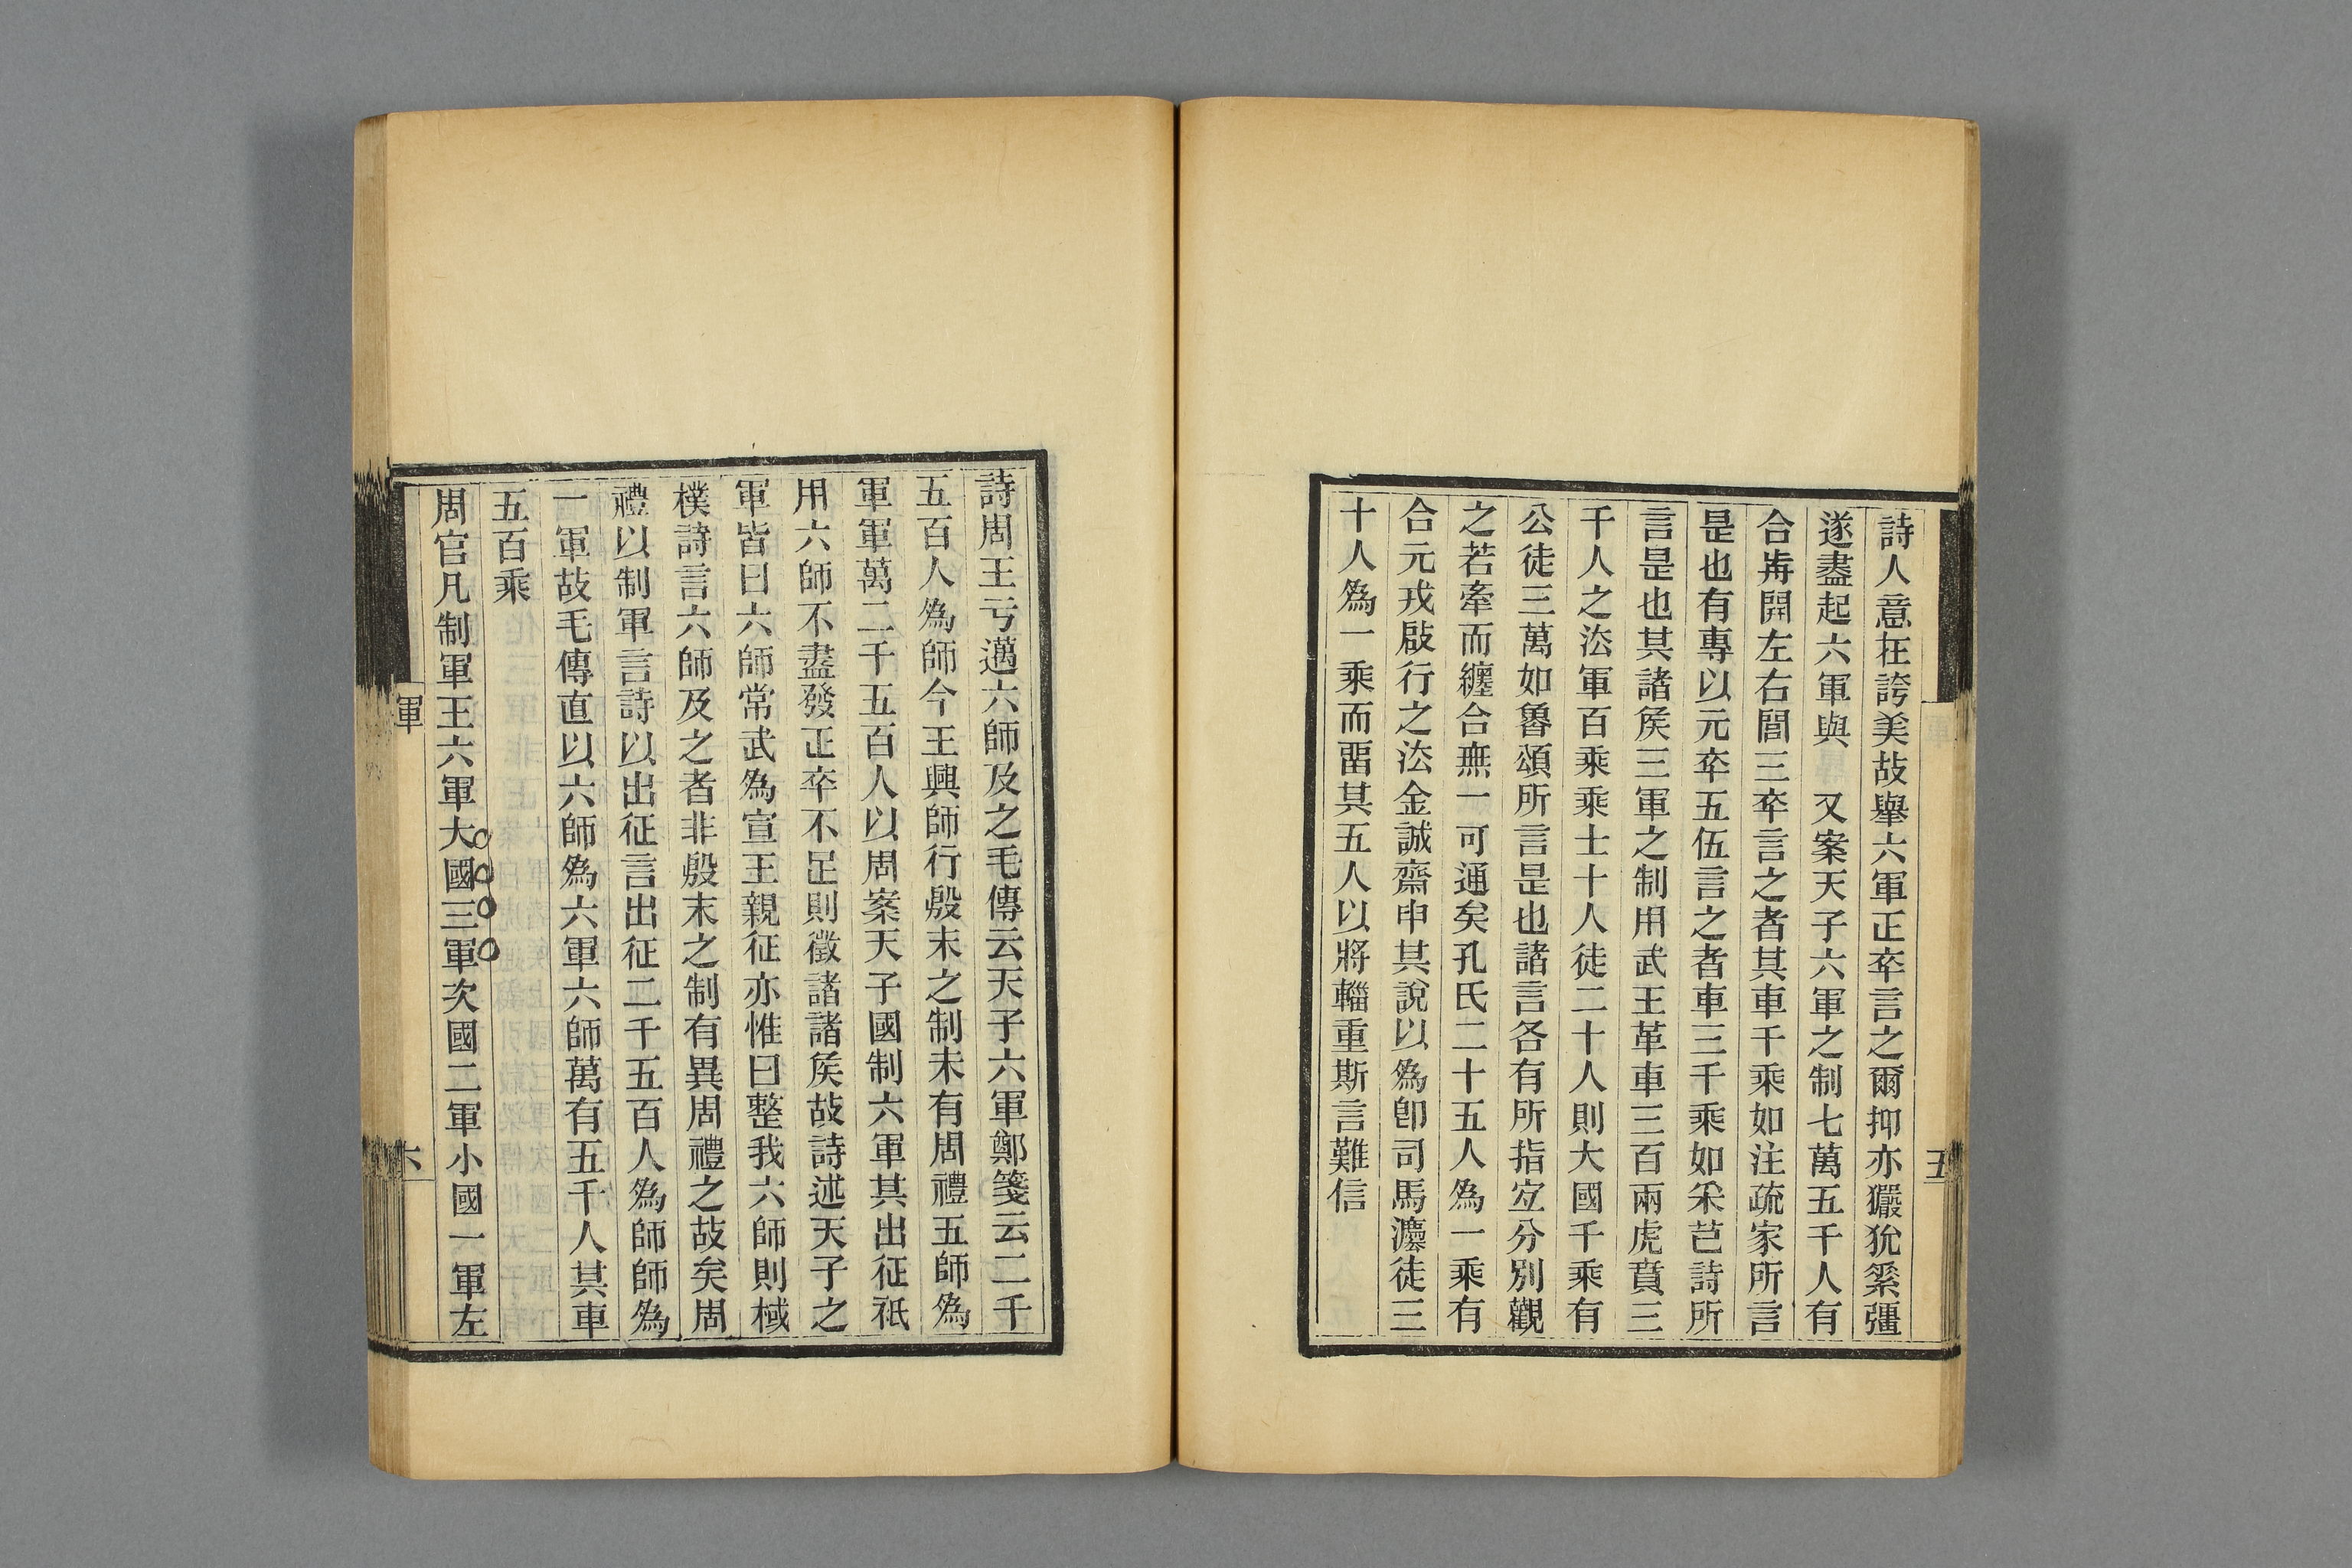 詩人意在誇美故舉六軍正卒言之爾抑亦玁狁䋣彊
遂盡起六軍與　又案天子六軍之制七萬五千人有
合歬開左右閒三卒言之者其車千乘如注疏家所言
是也有專以元卒五伍言之者車三千乘如采芑詩所
言是也其諸矦三軍之制用武王革車三百兩虎賁三
千人之法軍百乘乘士十人徒二十人則大國千乘有
公徒三萬如魯頌所言是也諸言各有所指宐分別觀
之若牽而纏合無一可通矣孔氏二十五人為一乘有
合元戎啟行之法金誠齋申其說以為卽司馬灋徒三
十人為一乘而畱其五人以將輜重斯言難信
五
詩周王亏邁六師及之毛傳云天子六軍鄭箋云二千
五百人為師今王興師行殷末之制未有周禮五師為
軍軍萬二千五百人以周案天子國制六軍其出征祇
用六師不盡發正卒不足則徵諸諸矦故詩述天子之
軍皆曰六師常武為宣王親征亦惟曰整我六師則棫
樸詩言六師及之者非殷末之制有異周禮之故矣周
禮以制軍言詩以出征言出征二千五百人為師師為
一軍故毛傳直以六師為六軍六師萬有五千人其車
五百乘
周官凡制軍王六軍大國三軍次國二軍小國一軍左
軍
六